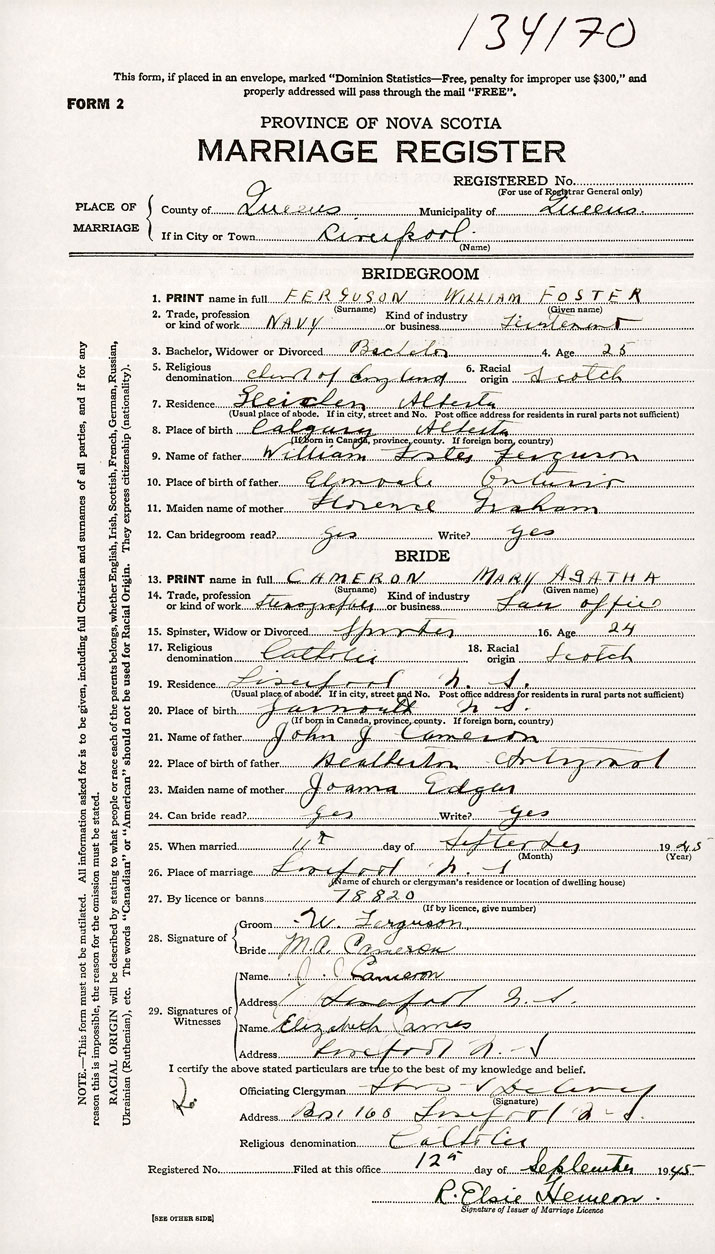 134170
This form, if placed in an envelope, marked "Dominion Statistics—Free, penalty for improper use $300," and
properly addressed will pass through the mail "FREE".
FORM 2
PROVINCE OF NOVA SCOTIA
MARRIAGE REGISTER
REGISTERED No.
(For use of Registrar General only)
PLACE OF MARRIAGE
County of Queens Municipality of Queens
If in City or Town Liverpool
(Name)
BRIDEGROOM
1. PRINT name in full FERGUSON WILLIAM FOSTER
(Surname) (Given name)
2. Trade, profession or kind of work NAVY Kind of industry or business Lieutenant
3. Bachelor, Widower or Divorced Bachelor 4. Age 25
5. Religious denomination Church of England 6. Racial origin Scotch
7. Residence Gleichen Alberta
(Usual place of abode. If in city, street and No. Post office address for residents in rural parts not sufficient)
8. Place of birth Calgary Alberta
(If born in Canada, province, county. If foreign born, country)
9. Name of father William Foster Ferguson
10. Place of birth of father Elmvale Ontario
11. Maiden name of mother Florence Graham
12. Can bridegroom read? yes Write? yes
BRIDE
13. PRINT name in full CAMERON MARY AGATHA
(Surname) (Given name)
14. Trade, profession or kind of work Stenographer Kind of industry or business Law office
15. Spinster, Widow or Divorced Spinster 16. Age 24
17. Religious denomination Catholic 18. Racial origin Scotch
19. Residence Liverpool N. S.
(Usual place of abode. If in city, street and No. Post office address for residents in rural parts not sufficient)
20. Place of birth Yarmouth N. S.
(If born in Canada, province, county. If foreign born, country)
21. Name of father John J Cameron
22. Place of birth of father Heatherton Antigonish
23. Maiden name of mother Joanna Edgar
24. Can bride read? yes Write? yes
25. When married 11th day of September 1945
(Month) (Year)
26. Place of marriage Liverpool N. S
(Name of church or clergyman's residence or location of dwelling house)
27. By licence or banns 78820
(If by licence, give number)
28. Signature of
Groom W. Ferguson
Bride M.A. Cameron
29. Signatures of Witnesses
Name Cameron
Address Liverpool N. S.
Name Elizabeth James
Address Liverpool N. S
I certify the above stated particulars are true to the best of my knowledge and belief.
Officiating Clergyman
(Signature)
Address Box 160 Liverpool N. S.
Religious denomination Catholic
Registered No. Filed at this office 12th day of September 1945
R. Elsie Hemeon.
Signature of Issuer of Marriage Licence
[SEE OTHER SIDE]
NOTE.—This form must not be mutilated. All information asked for is to be given, including full Christian and surnames of all parties, and if for any
reason this is impossible, the reason for the omission must be stated.
RACIAL ORIGIN will be described by stating to what people or race each of the parents belongs, whether English, Irish, Scottish, French, German, Russian,
Ukrainian (Ruthenian), etc. The words "Canadian" or "American" should not be used for Racial Origin. They express citizenship (nationality).